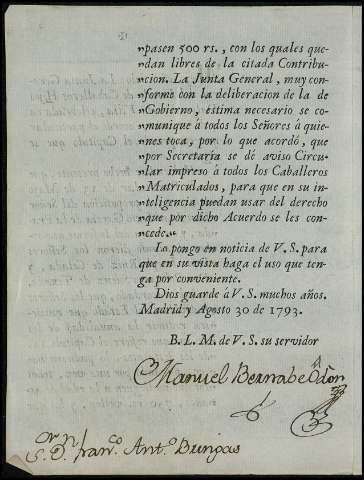 „pasen 500 rs., con los quales que-
„dan libres de la citada Contribu-
„cion. La Junta General, muy con-
„forme con la deliberacion de la de
„Gobierno, estima necesario se co-
„munique à todos los Señores à quie-
„nes toca, por lo que acordó, que
„por Secretaría se dé aviso Circu-
„lar impreso à todos los Caballeros
„Matriculados, para que en su in-
„teligencia puedan usar del derecho
„que por dicho Acuerdo se les con-
„cede.“
La pongo en noticia de V. S. para
que en su vista haga el uso que ten-
ga por conveniente.
Dios guarde à V. S. muchos años.
Madrid y Agosto 30 de 1793.
B. L. M. de V. S. su servidor
Manuel Bernabe
S.r D.n Fran.co Ant.o